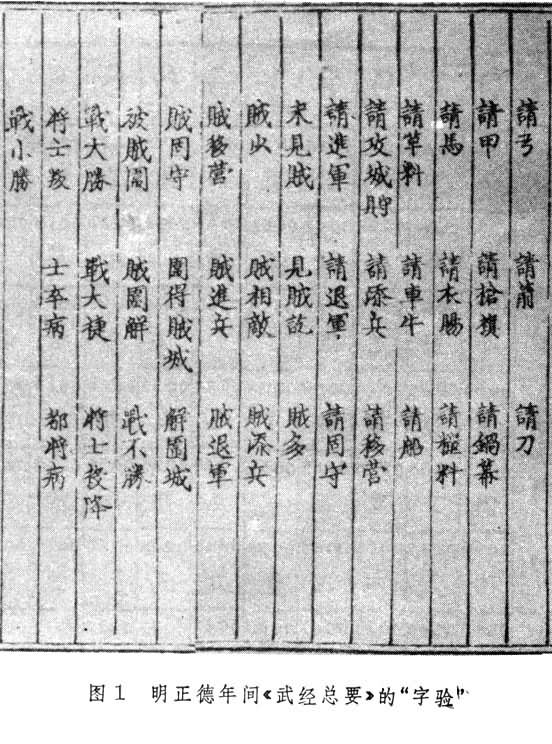 請弓 請箭 請刀
請甲 請槍旗 請鍋幕
請馬 請衣賜 請糧料
請草料 請車牛 請船
請攻城貯 請添兵 請移營
請進軍 請退軍 請固守
未見賊 見賊訖 賊多
賊少 賊相敵 賊添兵
賊移營 賊進兵 賊退軍
賊固守 圍得賊城 解圍城
被賊圍 賊圍解 戰不勝
戰大勝 戰大捷 將士投降
將士叛 士卒病 都將病
戰小勝
图1 明正德年间《武经总要》的“字验”